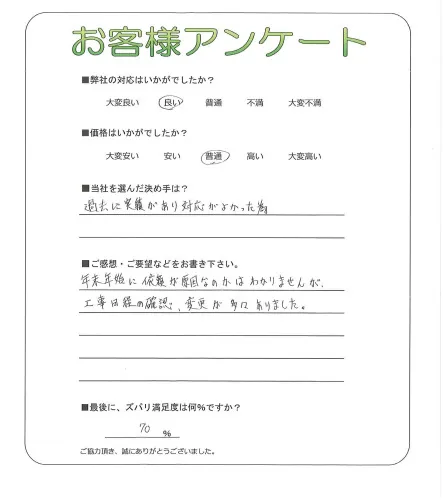 お客様アンケート
■弊社の対応はいかがでしたか?
大変良い 良い 普通 不満 大変不満
■価格はいかがでしたか?
大変安い 安い 普通 高い 大変高い
■当社を選んだ決め手は?
過去に実績があり対応がよかった為
■ご感想・ご要望などをお書き下さい。
年末年始に依頼が原因なのかはわかりませんが、
工事日程の確認、変更が多々ありました。
■最後に、ズバリ満足度は何%ですか?
70 %
ご協力頂き、誠にありがとうございました。